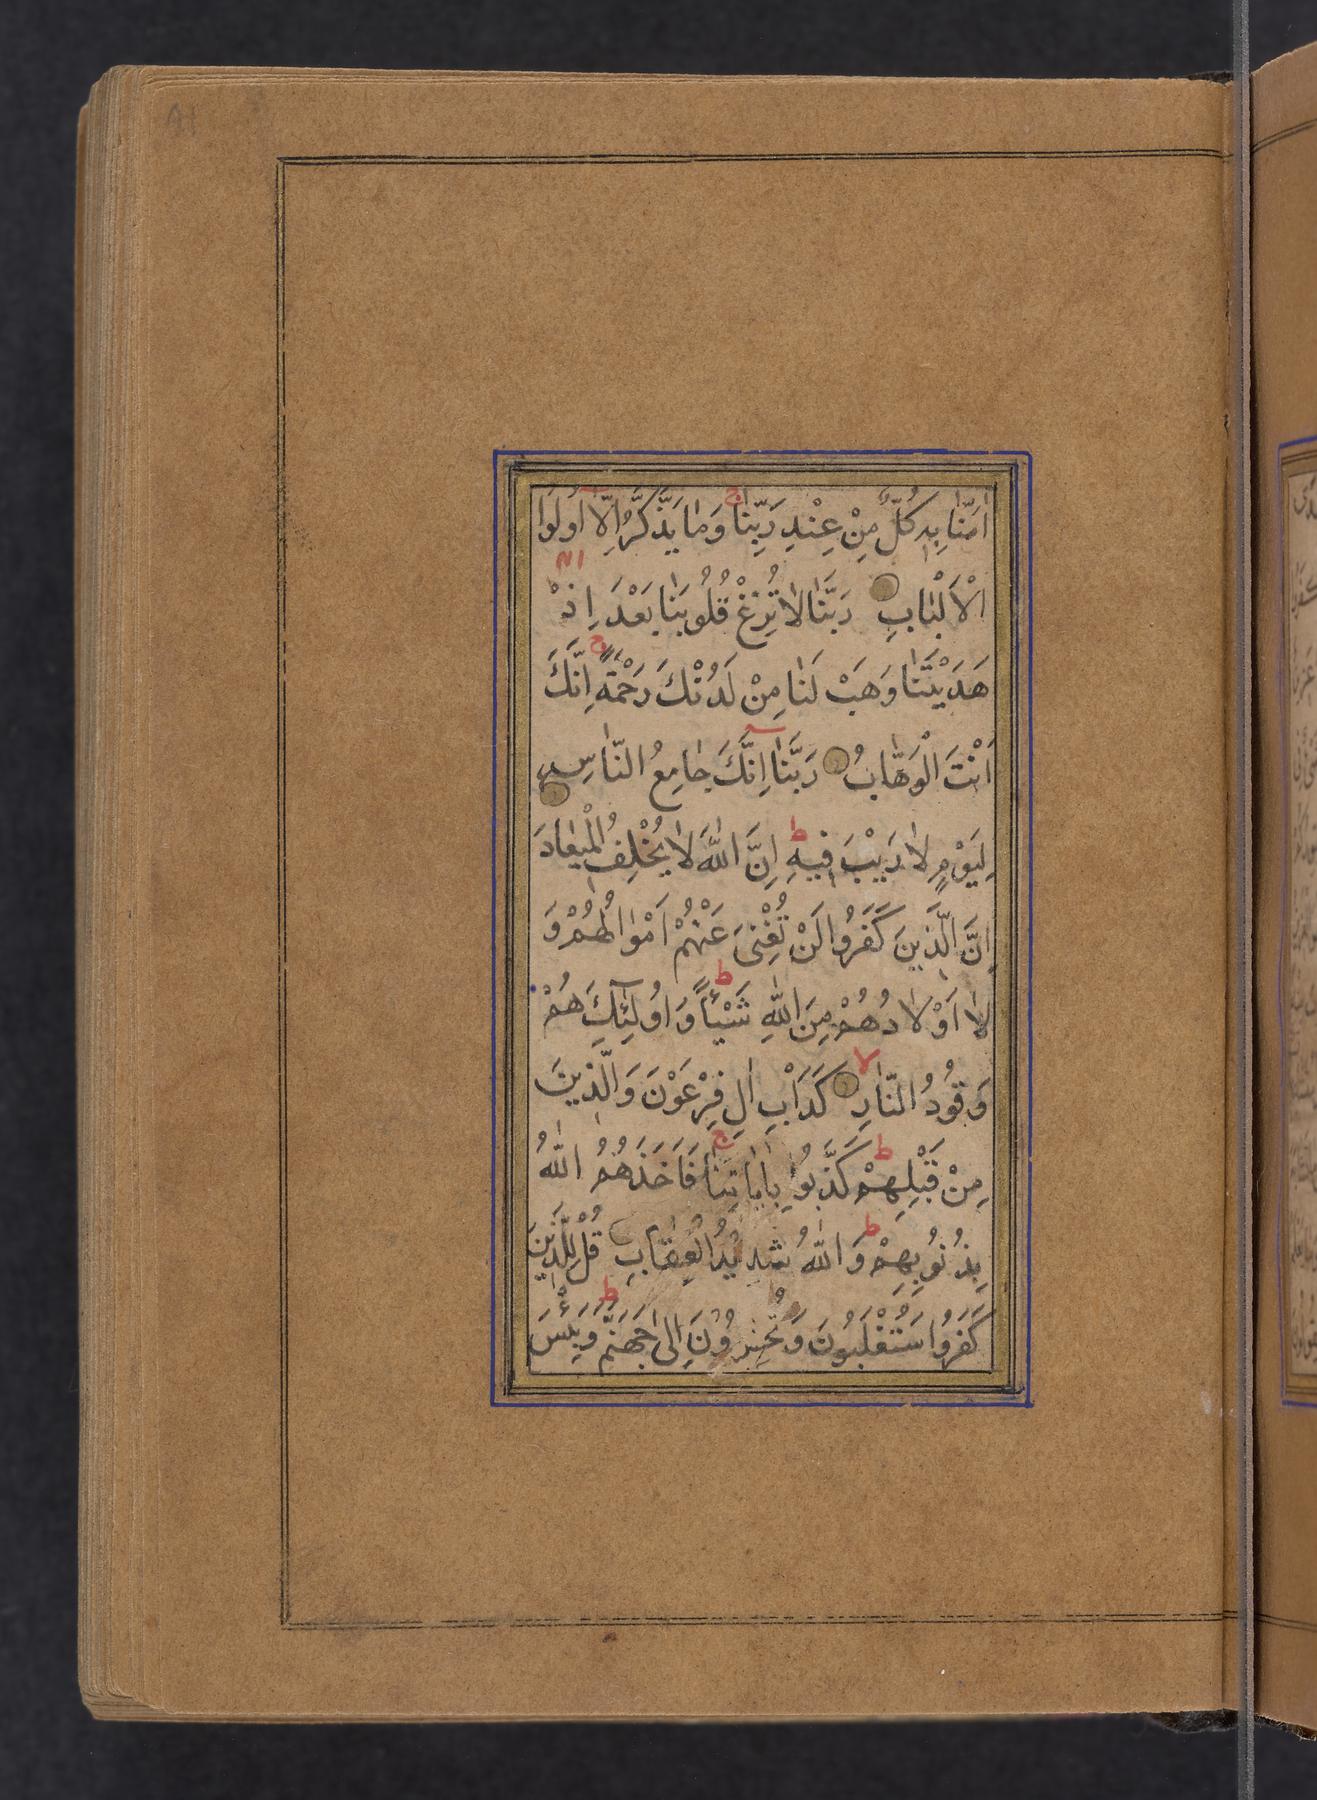 اٰمَنّٰا بِهِ كُلٌّ مِنْ عِنْدِ رَبِّنٰا وَمٰا يَذَّكَّرُ اِلّٰا اُولُوا
الْاَلْبٰابِ رَبَّنٰا لٰا تُزِغْ قُلُوبَنٰا بَعْدَ اِذْ
هَدَيْتَنٰا وَهَبْ لَنٰا مِنْ لَدُنْكَ رَحْمَةً اِنَّكَ
اَنْتَ الْوَهّٰابُ رَبَّنٰا اِنَّكَ جٰامِعُ النّٰاسِ
لِيَوْمٍ لٰا رَيْبَ فِيهِ اِنَّ اللّٰهَ لٰا يُخْلِفُ الْمِيْعٰادَ
اِنَّ الَّذِينَ كَفَرُوا لَنْ تُغْنِىَ عَنْهُمْ اَمْوٰالُهُمْ وَ
لٰا اَوْلٰادُهُمْ مِنَ اللّٰهِ شَيْئًا وَ اُولٰئِكَ هُمْ
وَقُودُ النّٰارِ كَدَاْبِ اٰلِ فِرْعَوْنَ وَالَّذِينَ
مِنْ قَبْلِهِمْ كَذَّبُوا بِاٰيٰاتِنٰا فَاَخَذَهُمُ اللّٰهُ
بِذُنُوبِهِمْ وَاللّٰهُ شَدِيدُ الْعِقٰابِ قُلْ لِلَّذِينَ
كَفَرُوا سَتُغْلَبُونَ وَتُحْشَرُونَ اِلىٰ جَهَنَّمَ وَبِئْسَ